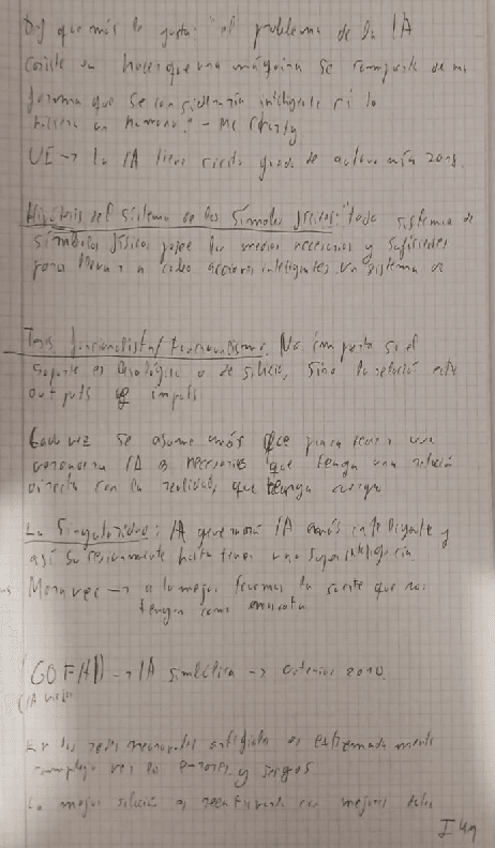 que más le gusta: "el problema de la IA
consiste en hacer que una máquina se comporte de una
forma que se consideraría inteligente si lo
hiciera un humano." - Mc Carthy
UE → La IA tiene cierto grado de autonomía 2018.
Hipótesis del sistema de los símbolos físicos: "todo sistema de
símbolos físicos posee los medios necesarios y suficientes
para llevar a cabo acciones inteligentes. Un sistema de
Tesis funcionalista/funcionalismo. No importa si el
soporte es biológico o de silicio, sino la relación entre
outputs e
Cada vez se asume más que para tener una
verdadera IA es necesario que tenga una relación
directa con la realidad, que tenga cuerpo
La Singularidad: IA generará IA más inteligente y
así sucesivamente hasta tener una superinteligencia.
Moravec → a lo mejor tenemos la suerte que nos
tengan como mascota
(GOFAI) → IA simbólica → anterior 2010.
(IA
En las redes neuronales artificiales es extremadamente
complejo ver los errores y sesgos
La mejor solución es reentrenarla con mejores datos